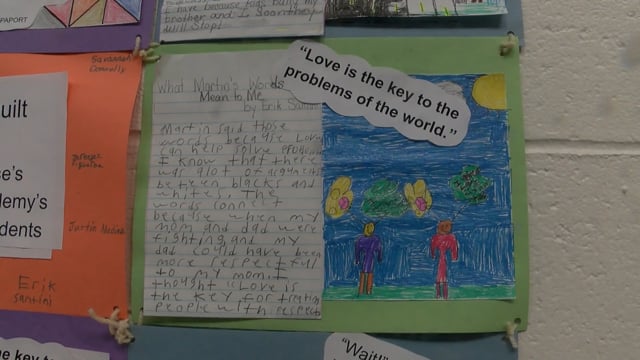 PAPORT
I have because kids bully my
brother and I. Soon they
will stop!
Savannah
Connolly
uilt
se's
demy's
dents
Justin
Erik
Santini
What Martin's Words
Mean to Me
by Erik
Martin said those
words because Love
can help solve
I know that there
was alot of
between blacks and
whites. The
words connect
because when my
mom and dad were
fighting and my
dad could have been
more respectful
to my mom. I
thought "Love is
the key for treating
people with respect
"Love is the key to the
problems of the world."
e key to
"Wait!